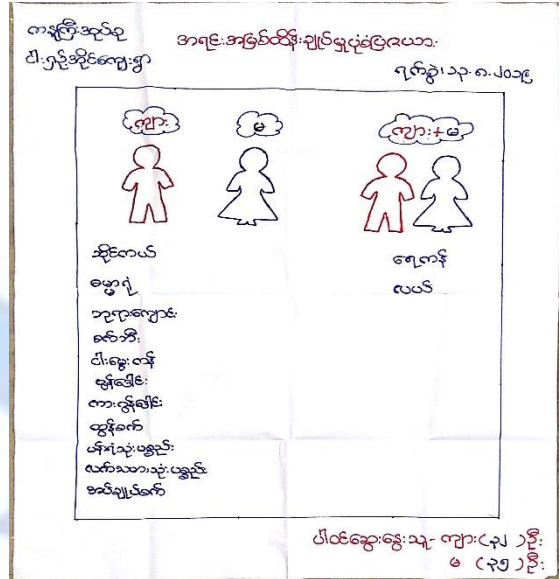 ကညုကြီးအုပ်စု
ငါးရှဉ့်အိုင်ကျေးရွာ
အရင်းအမြစ်ထိန်းချုပ်မှုပုံပြဇယား
ရက်စွဲ၊ ၁၃.၈.၂၀၁၉
ကျား
မ
ကျား+မ
ဆိုင်ကယ်
ဓမ္မာရုံ
ဘုရားကျောင်း
စက်ဘီး
ငါးမွေးကန်
ထွန်ဒေါင်း
ကား၊ဂွန်ဒေါင်း
ထွန်စက်
ပန်းရံသုံးပစ္စည်း
လက်သမားသုံးပစ္စည်း
အပ်ချုပ်စက်
ရေကန်
လယ်
ပါဝင်ဆွေးနွေးသူ- ကျား(၃၂)ဦး
မ (၃၅)ဦး